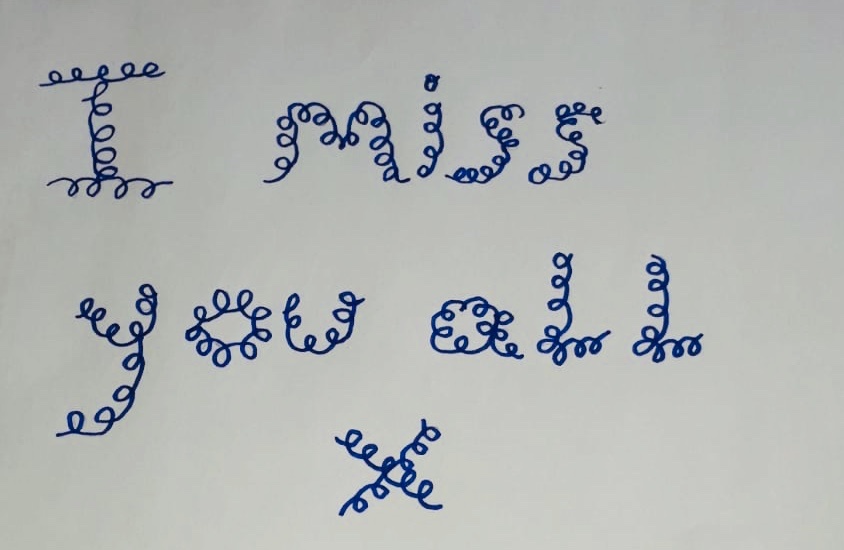 I miss
you all
x